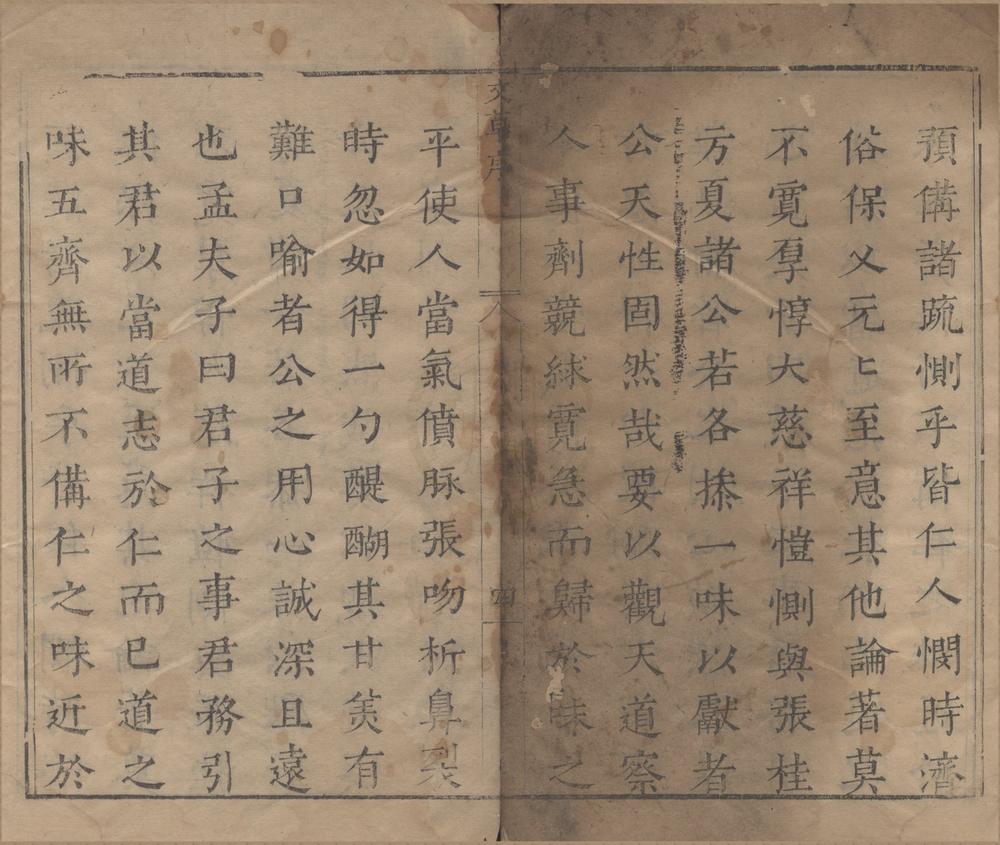 預備諸疏惻乎皆仁人憫時濟
俗保乂元匕至意其他論著莫
不寬厚惇大慈祥愷惻與張桂
方夏諸公若各搽一味以獻者
公天性固然哉要以觀天道察
人事劑競絿寬急而歸於味之
文草序
八
四
平使人當氣僨脉張吻析鼻裂
時忽如得一勺醍醐其甘美有
難口喻者公之用心誠深且遠
也孟夫子曰君子之事君務引
其君以當道志於仁而已道之
味五齊無所不備仁之味近於